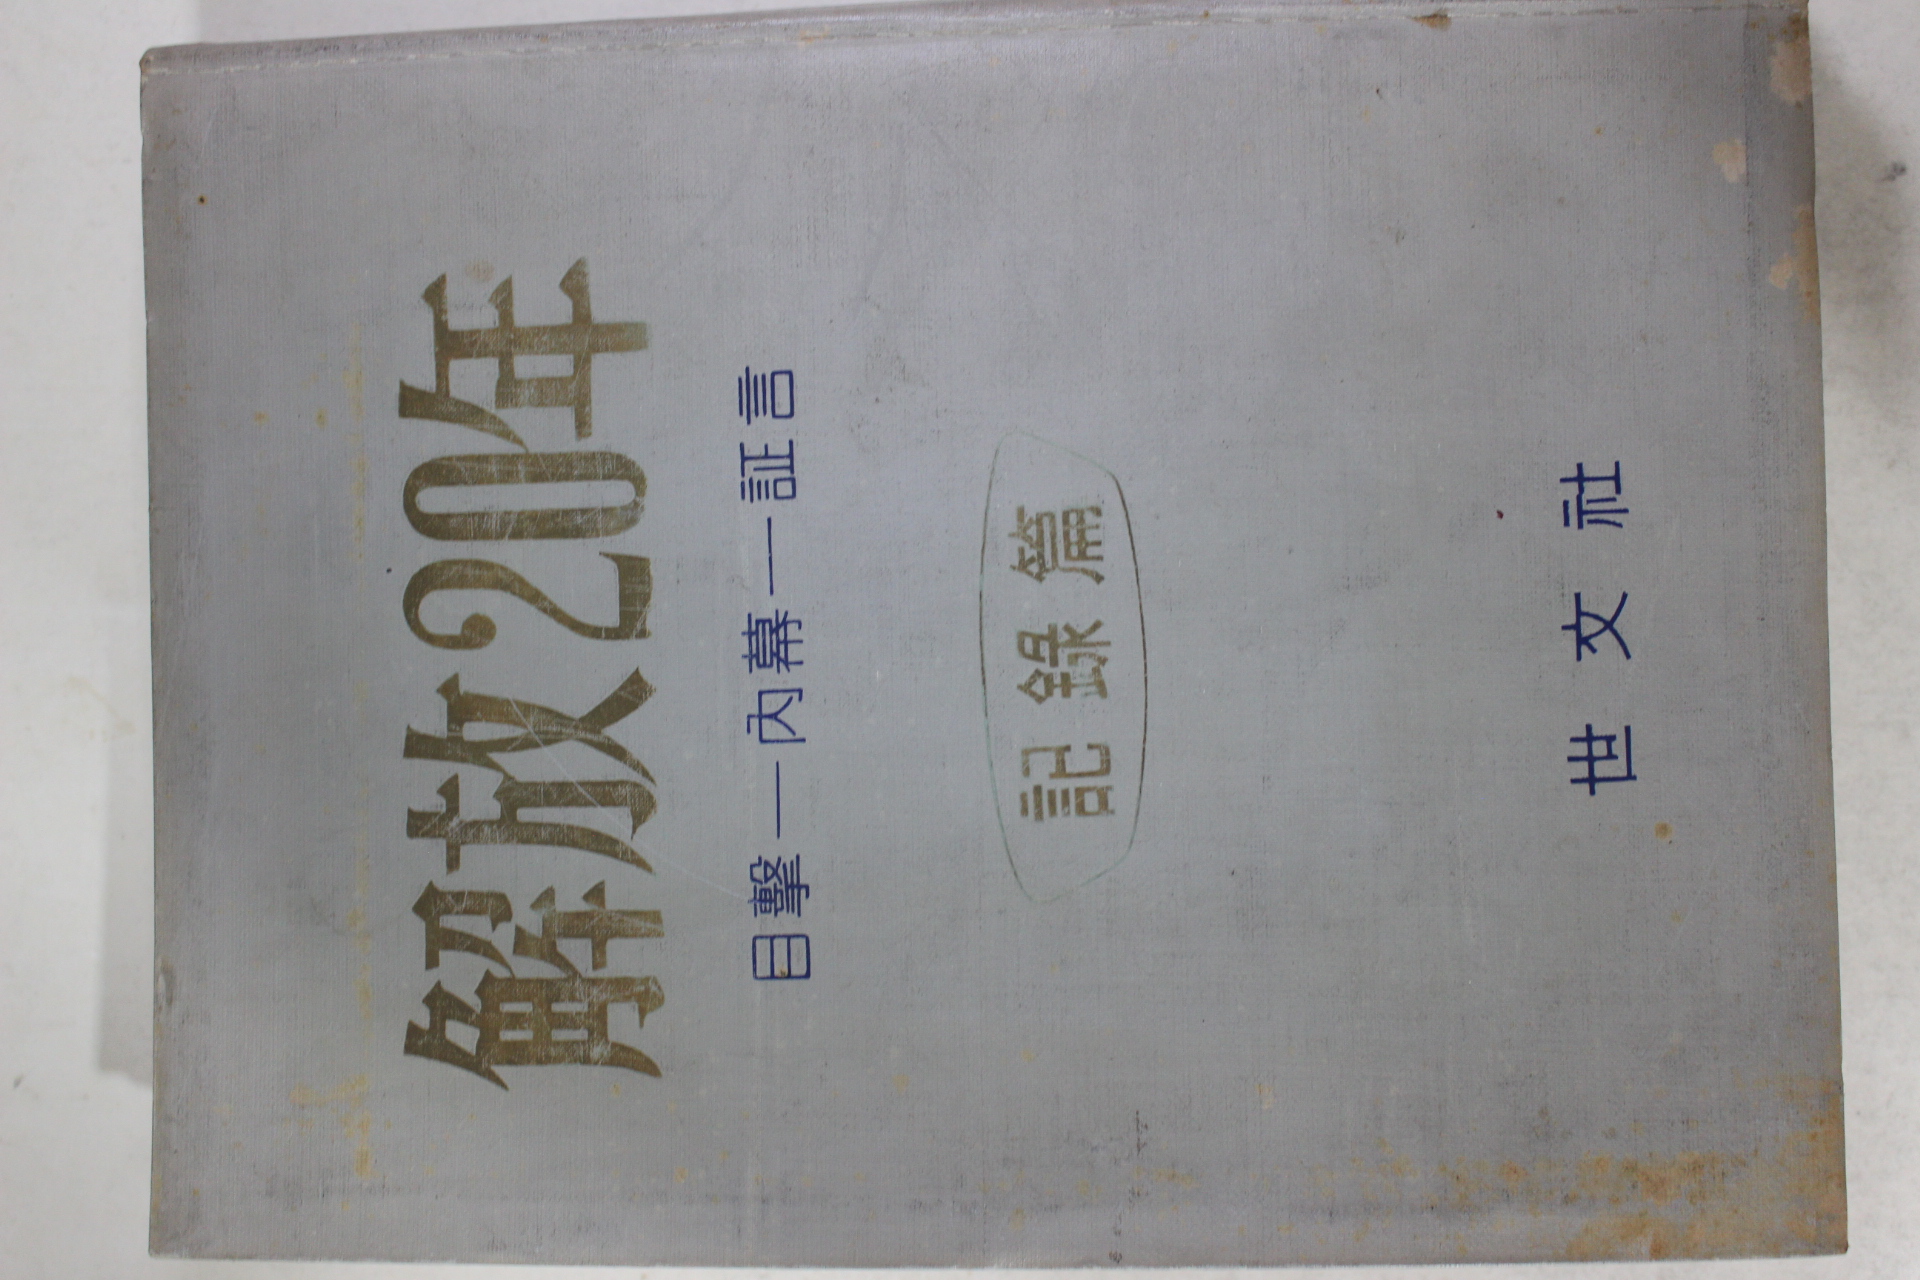 解放20年
目擊―內幕―証言
記錄篇
世文社